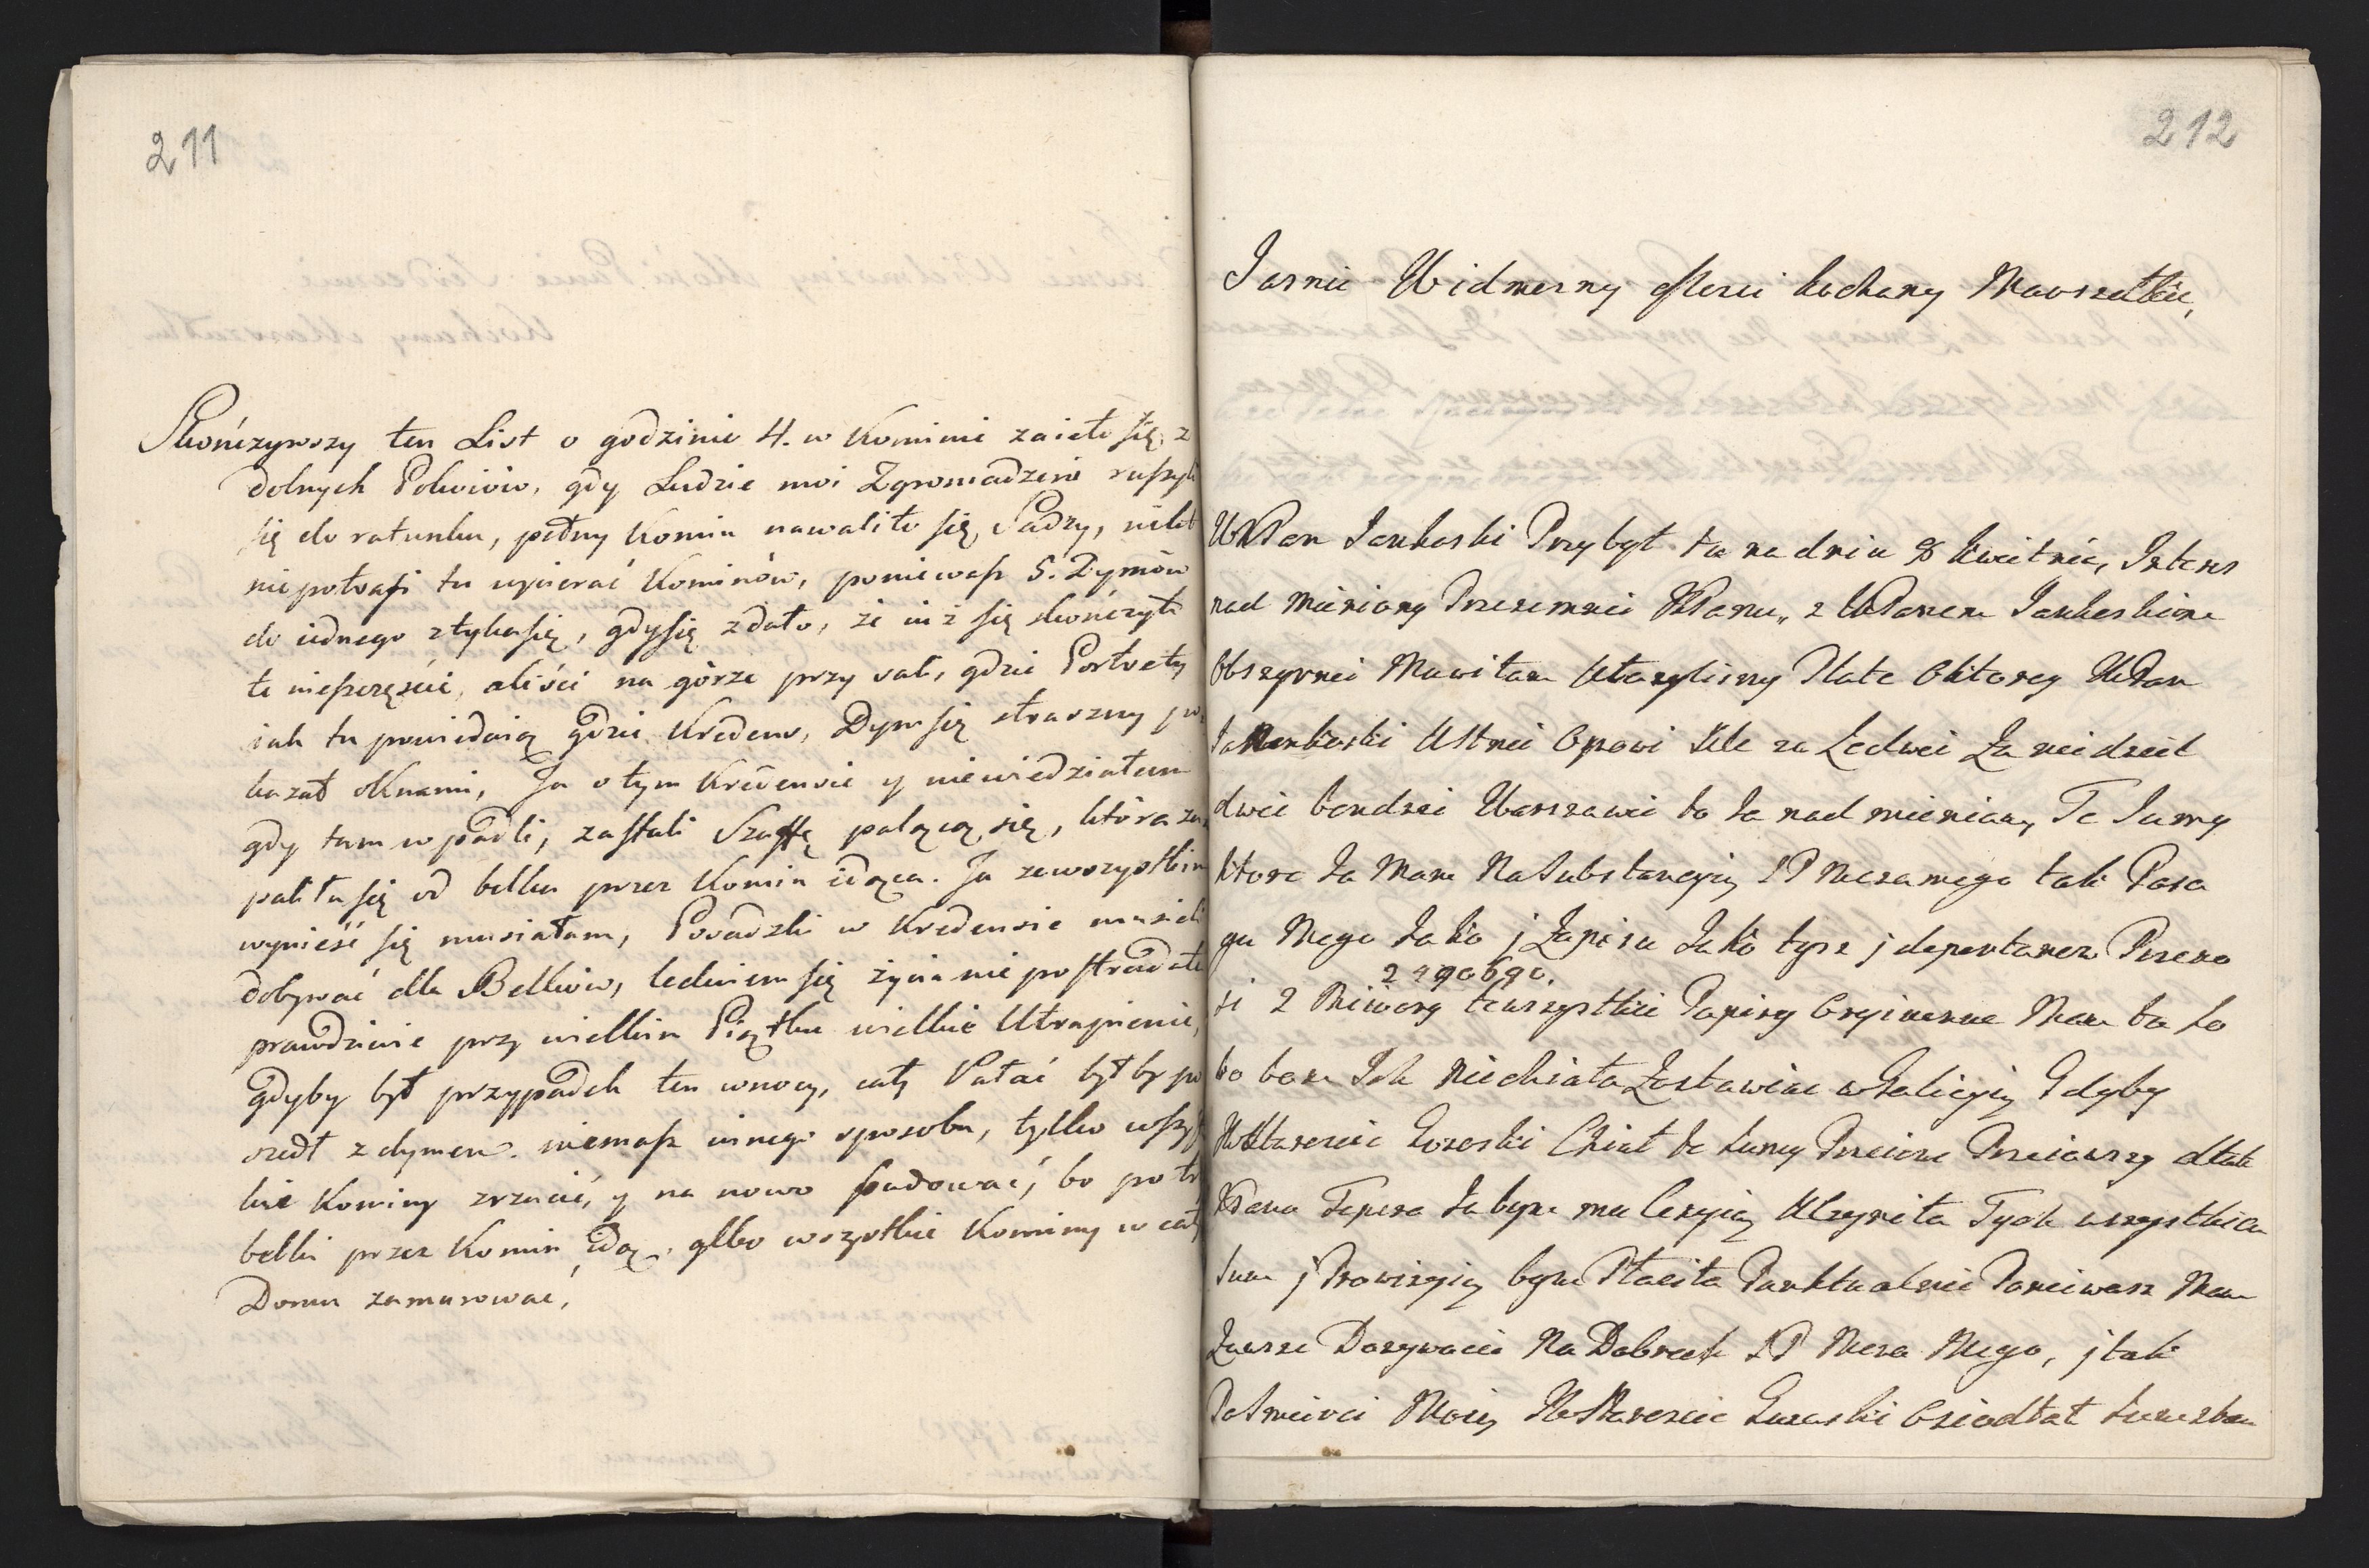 211
Skończywszy ten List o godzinie 4. w Kominie zaieło się z
dolnych Pokoiów, gdy Ludzie moi Zgromadzeni ruszyli
się do ratunku, pełny Komin nawaliło się Sadzy, nikt
niepotrafi tu wycierać Kominów, poniewasz 5. Dymów
do iednego stykasię, gdysię zdało, że iuż się skończyło
te nieszczęście, aliści na górze przy sali, gdzie Portrety
iak tu powiedaią gdzie Kredens, Dym się straszny po
kazał oknami, Ja o tym Kredensie y niewiedziałam
gdy tam wpadli, zastali Szaffę palącą się, która za
paliła się od belku przez Komin idąca. Ja zewszystkim
wynieść się musiałam, Posadzki w Kredensie musieli
dobywać dla Belków, ledwiem się życia nie postradała
prawdziwie przy wielkim Piątku wielkie Utrapienie,
gdyby był przypadek ten wnocy, cały Pałac byłby po
szedł z dymem. niemasz innego sposobu, tylko wszyst
kie Kominy zrzucić, y na nowo stadować, bo po
belki przez Komin idą, albo wszystkie Kominy w cał
Domu zamurować,
212
Jasnie Widmorny Mosci kochany Marszałku,
WPan Jankoski Przybył tu na dniu 8 kwietnia, Interes
nad mieniony Przezemnie WPanu, z WPanem Jankoskim
Obszyrnie Mawiłam Utozylismy Plate Oktorey WPan
Jankoski Ustnie Opowi za Ledwei Za neidziel
dwei bendzei Warszawei to Ja nad mieniam, Te Sumy
ktore Ja Mam Na Substancyi SP Mezamego tak Posa
gu Mego Jako j Zapisu Jako tysz j
249060.
si 2 tewszystkie Papiry Mam tu
bo bom Ich niechciała Zostawiac w Galicyi, Gdyby
WStaroscic Chciał te Sumy
WPana Teperza Jabym mu Cesyią Uczyniła Tych wszystkich
Sum j Prowizyią bym Płaciła Punktualnie Poniewasz Mam
Zawsze Dozywocie Na Dobrach SP Meza Mego, j tak
Po Smierci Moiey WStaroscic Osiadłat